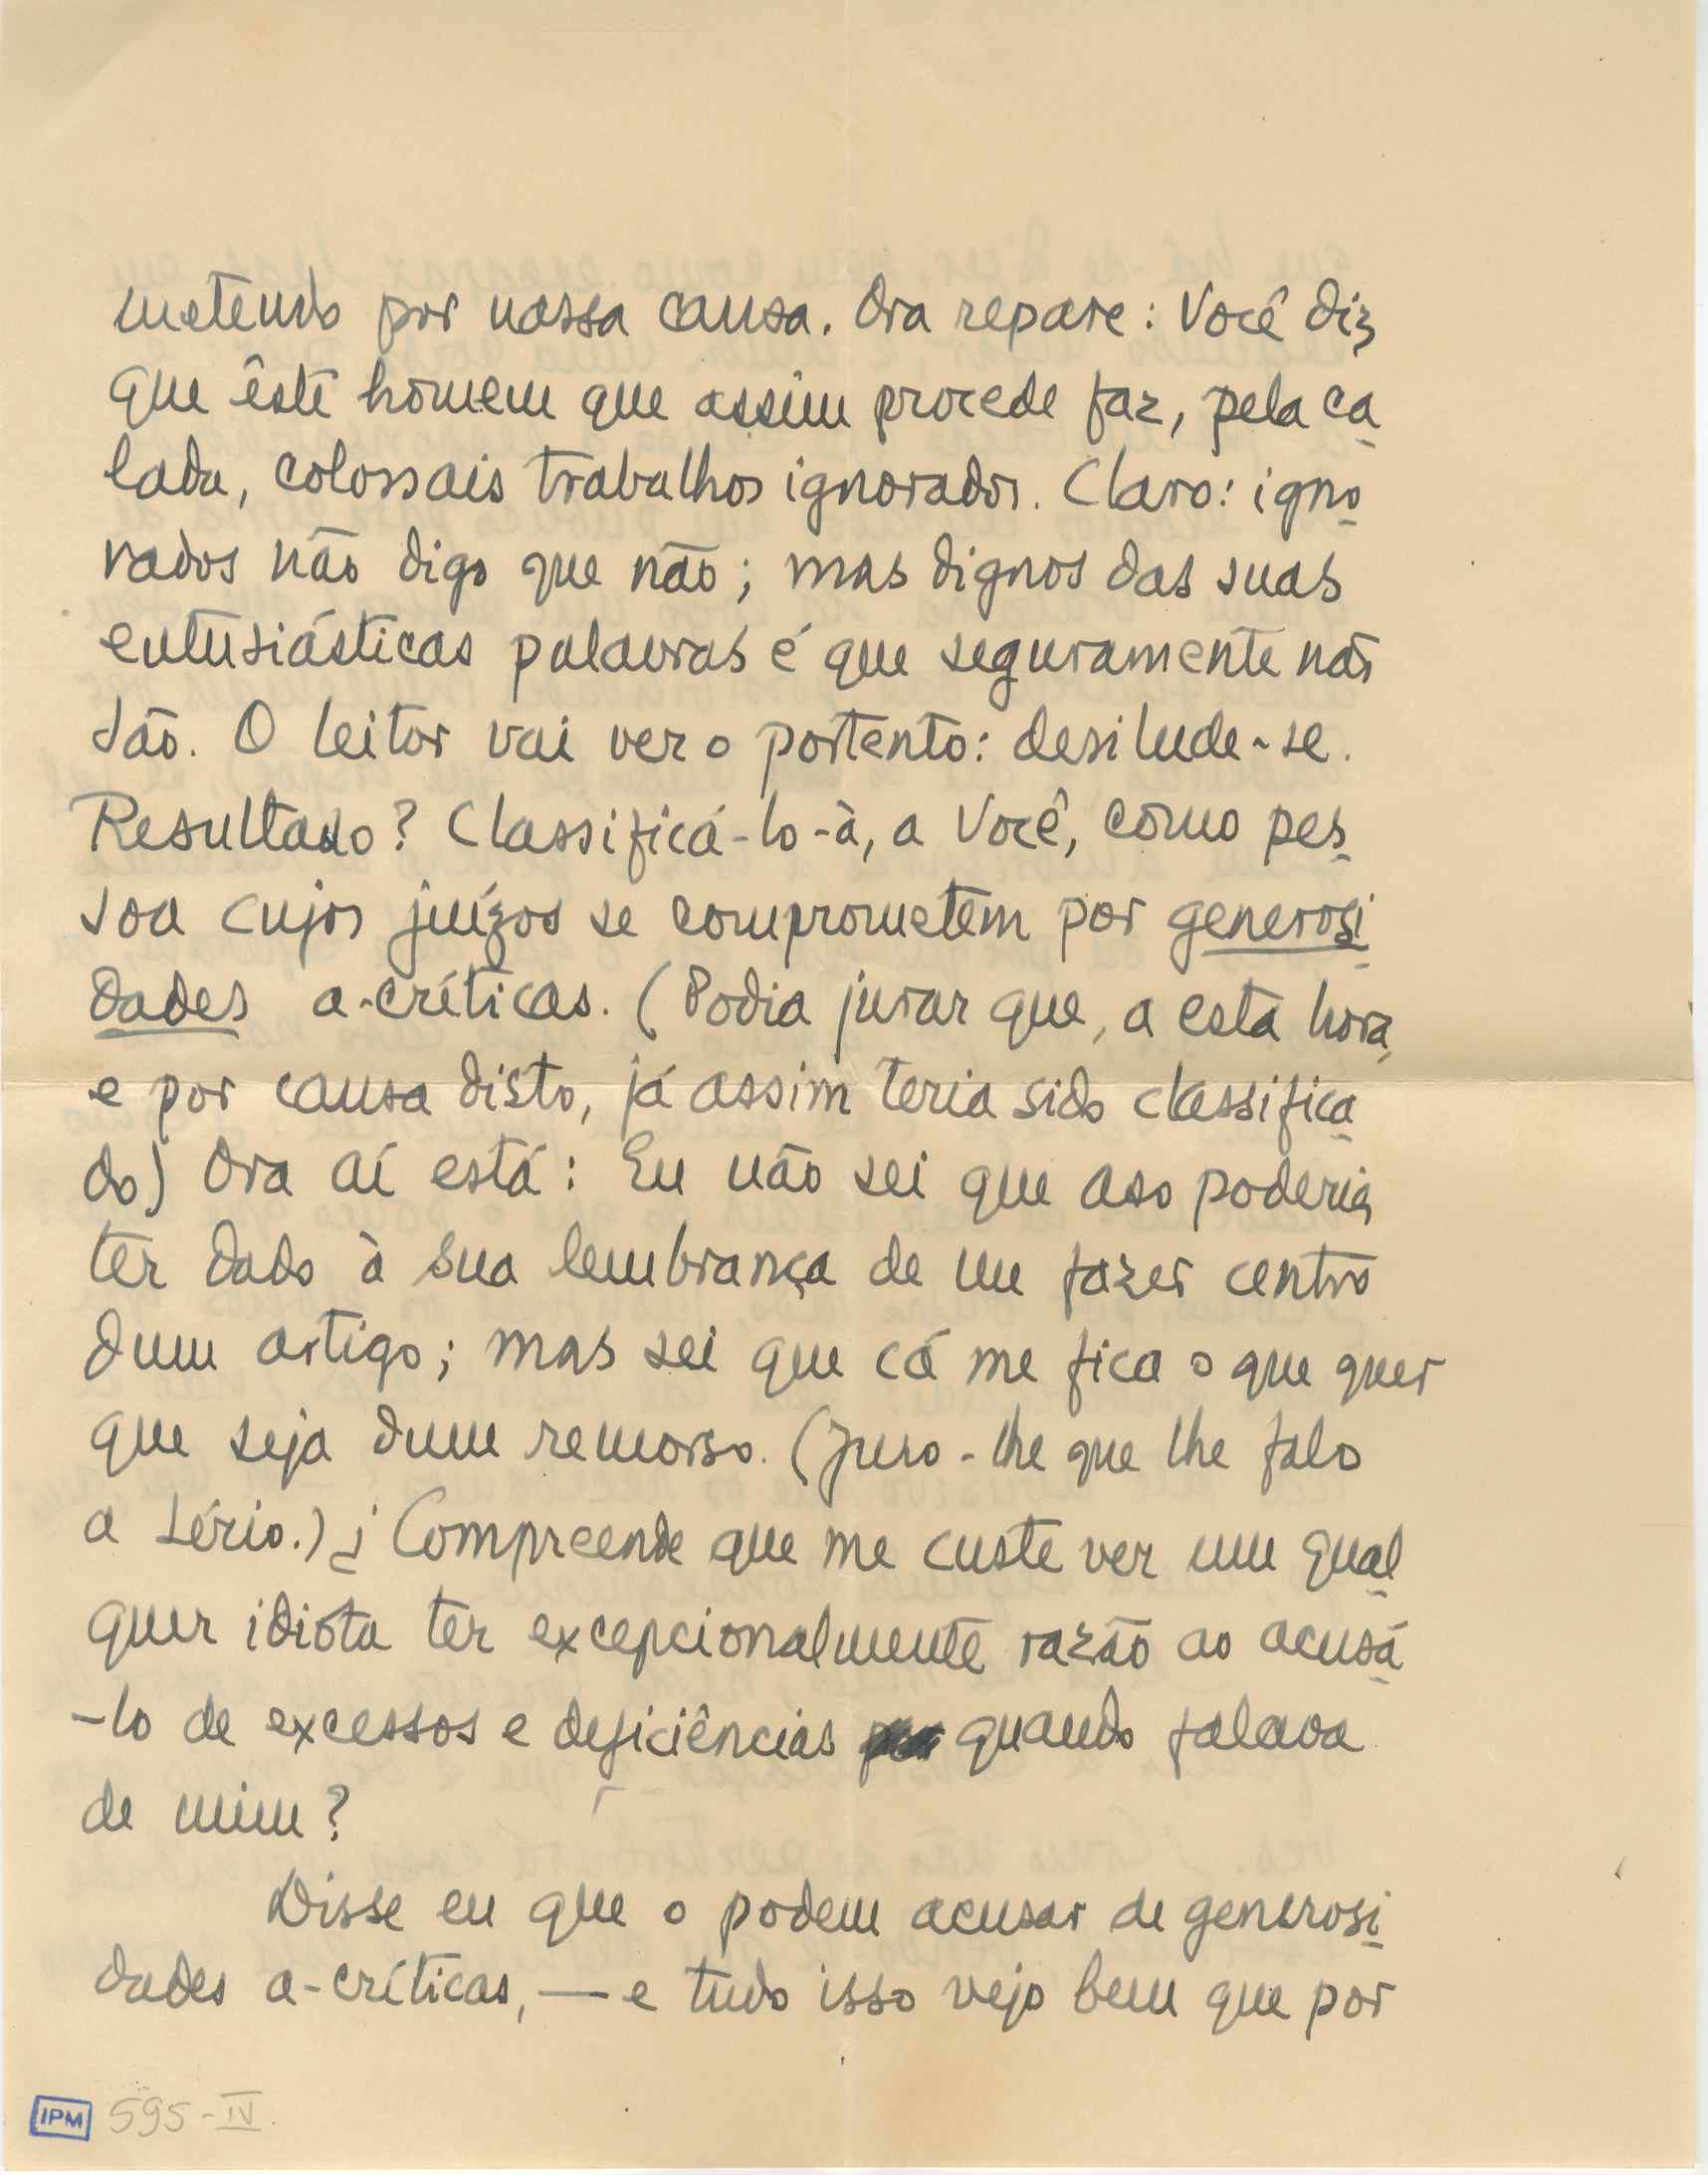 metendo por nossa causa. Ora repare: Você diz
que êste homem que assim procede faz, pela ca
lada, colossais trabalhos ignorados. Claro: igno
rados não digo que não; mas dignos das suas
entusiásticas palavras é que seguramente não
são. O leitor vai ver o portento: desilude-se.
Resultado? Classificá-lo-à, a Você, como pes
soa cujos juízos se comprometem por generosi
dades a-críticas. (Podia jurar que, a esta hora,
e por causa disto, já assim teria sido classifica
do) Ora aí está: Eu não sei que aso poderia
ter dado à sua lembrança de me fazer centro
dum artigo; mas sei que cá me fica o que quer
que seja dum remorso. (Juro-lhe que lhe falo
a sério.) ¿Compreende que me custe ver um qual
quer idiota ter excepcionalmente razão ao acusá
-lo de excessos e deficiências quando falava
de mim?
Disse eu que o podem acusar de generosi
dades a-críticas, — e tudo isso vejo bem que por
IPM 595-IV.